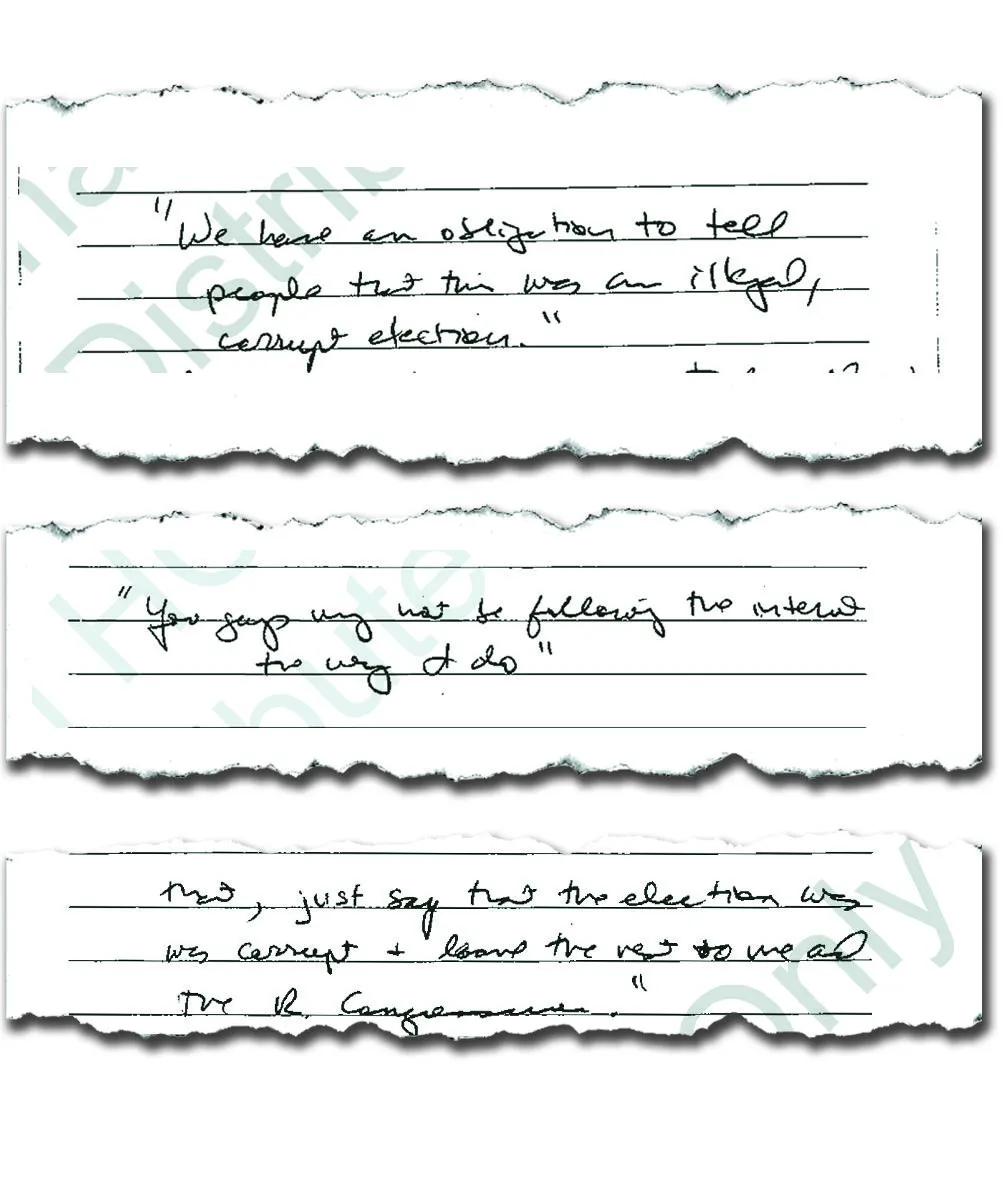 "We have an obligation to tell
people that this was an illegal,
corrupt election."
"You guys may not be following the internet
the way I do"
that, just say that the election was
was corrupt + leave the rest to me and
the R. Congressmen."
Distrib
bute
Only